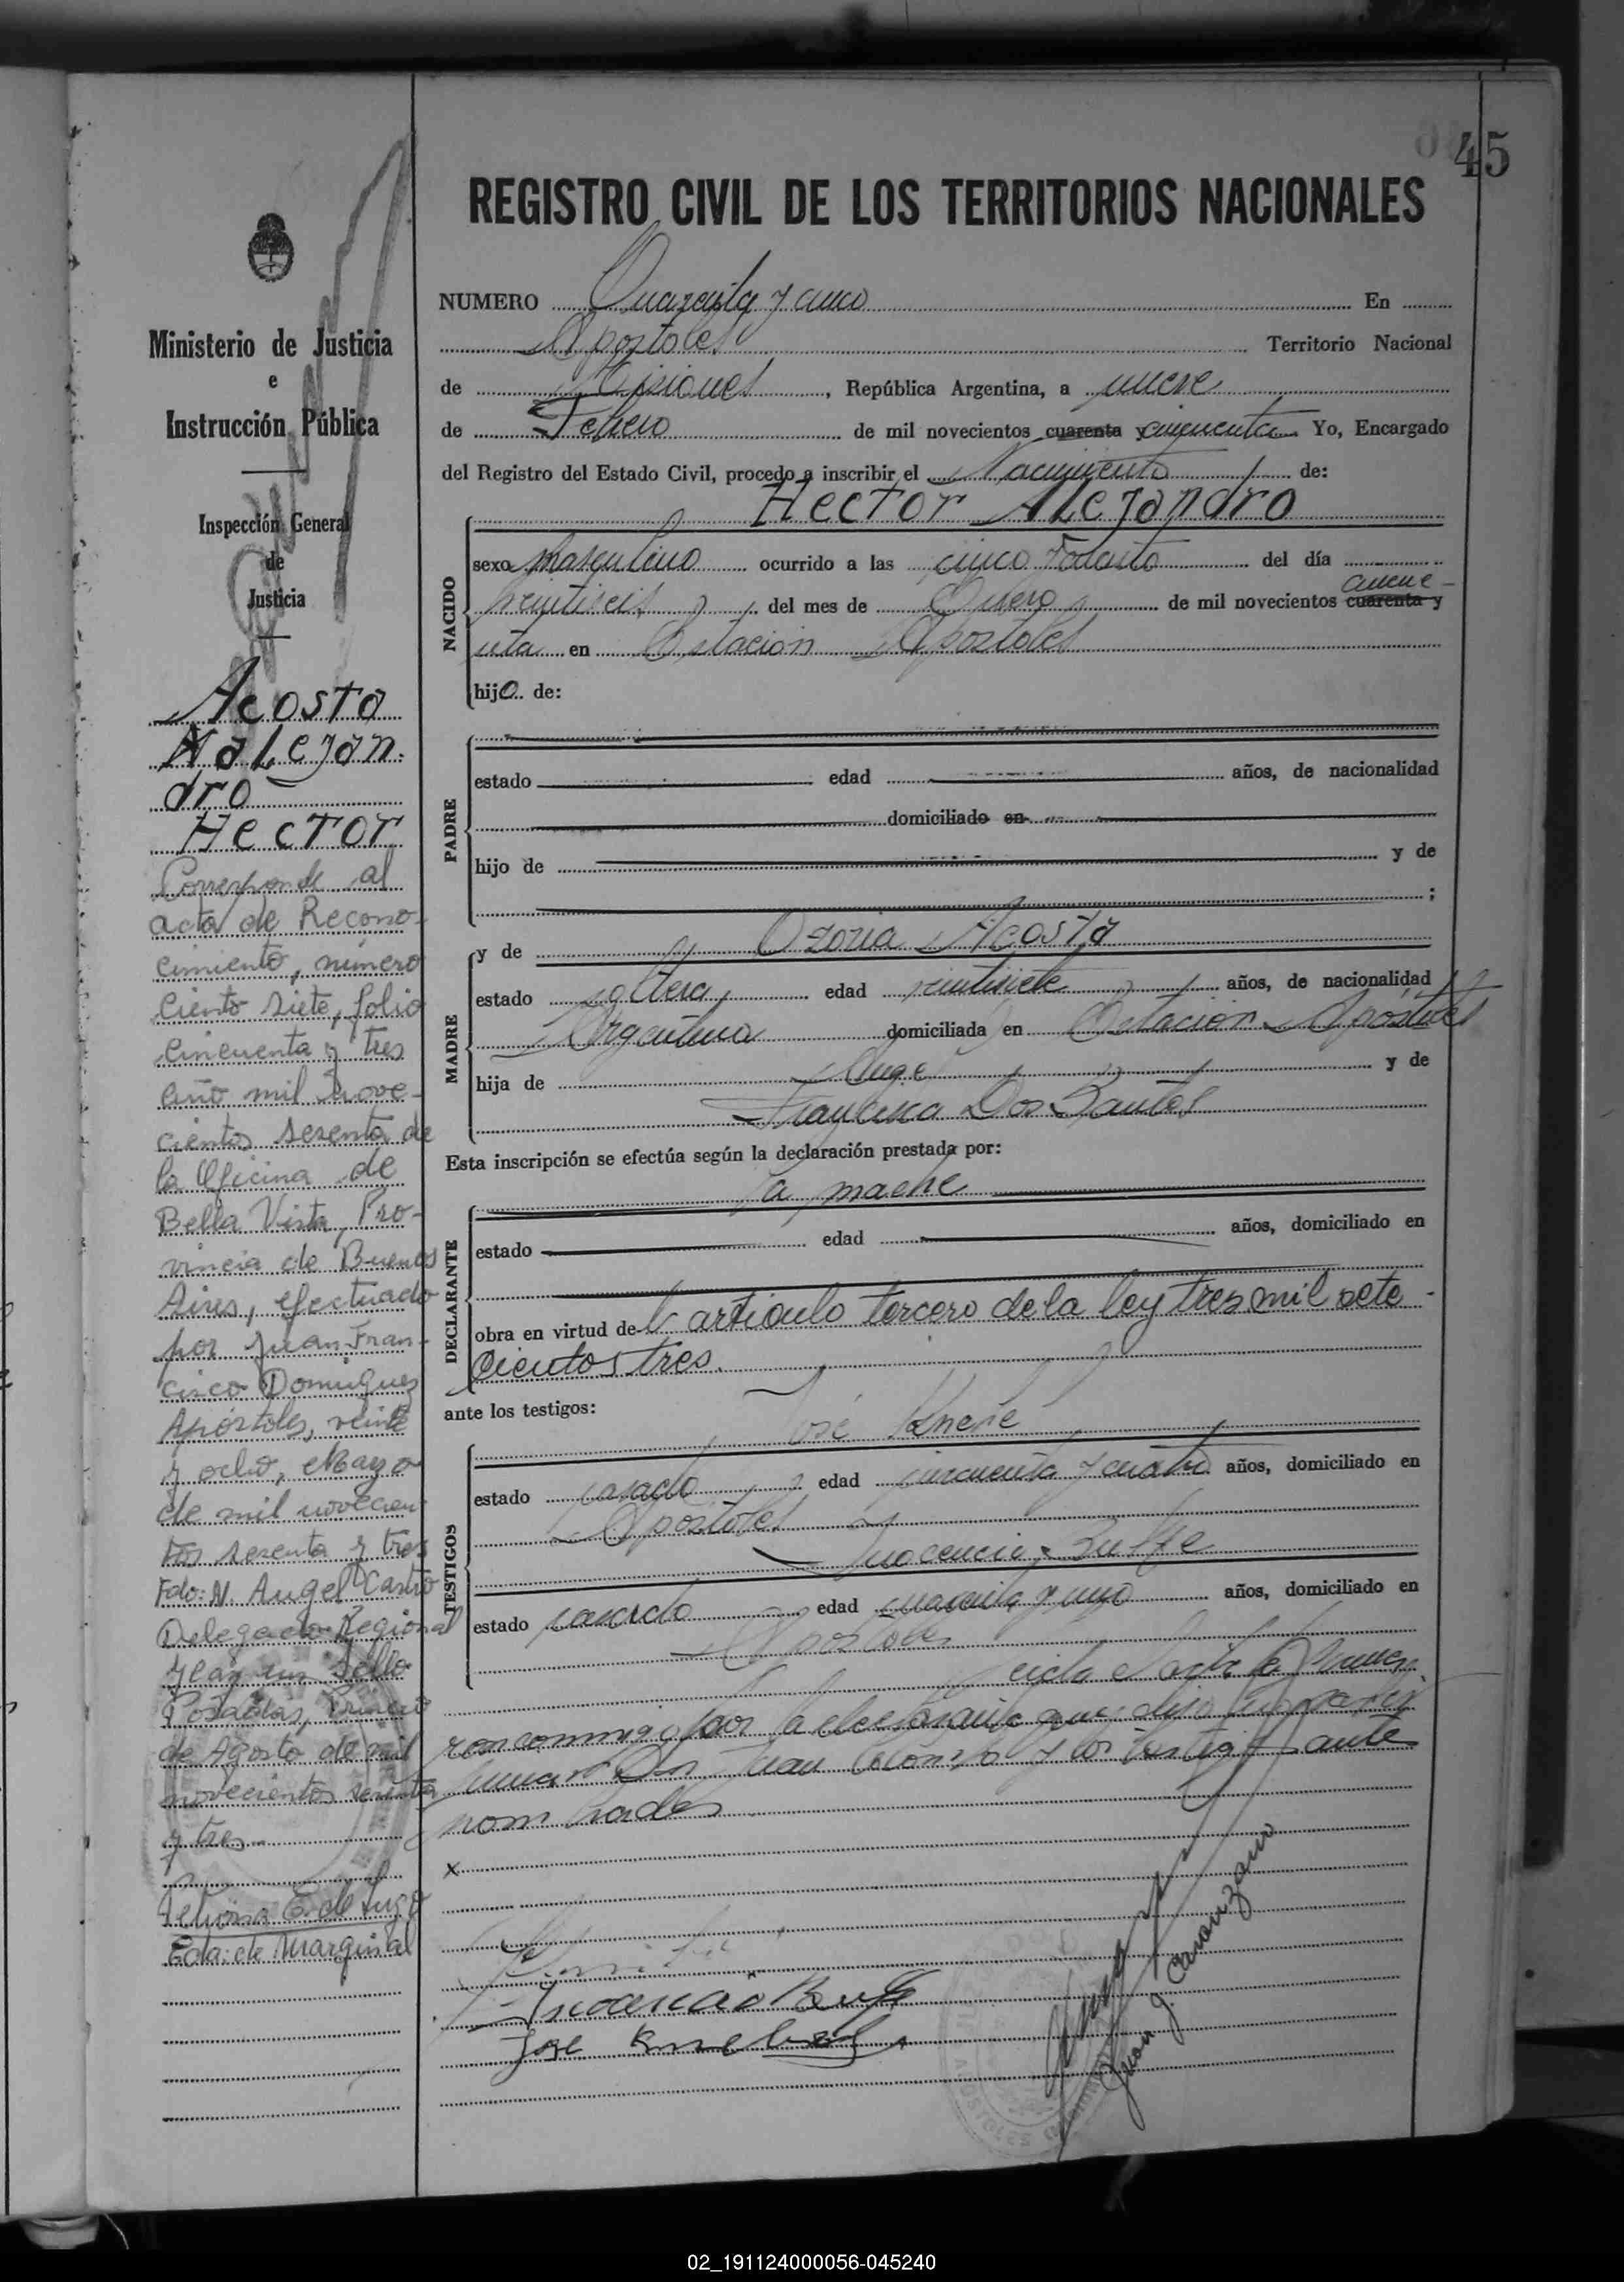 45
REGISTRO CIVIL DE LOS TERRITORIOS NACIONALES
Ministerio de Justicia
e
Instrucción Pública
Inspección General
de
Justicia
Acosta
Alejan-
dro
Hector
Corresponde al
acta de Recono-
cimiento, número
Ciento siete, folio
Cincuenta y tres
año mil nove-
cientos sesenta de
la Oficina de
Bella Vista, Pro-
vincia de Buenos
Aires, efectuado
por Juan Fran-
cisco Dominguez
Apóstoles, veinte
y ocho, Mayo
de mil novecien-
tos sesenta y tres
Fdo: N. Angel Castro
Delegado Regional
y hay un Sello
Posadas, Primero
de Agosto de mil
novecientos sesenta
y tres
E. de Lugo
Eda: de Marginal
NUMERO Cuarenta y cinco En
Apostoles Territorio Nacional
de Misiones, República Argentina, a nueve
de Febrero de mil novecientos cuarenta y cincuenta Yo, Encargado
del Registro del Estado Civil, procedo a inscribir el Nacimiento de:
Hector Alejandro
NACIDO
sexo masculino ocurrido a las cinco del día
veintiseis del mes de Enero de mil novecientos cuarenta y cincue-
nta en Estación Apostoles
hijo de:
PADRE
estado edad años, de nacionalidad
domiciliado en
hijo de y de
;
MADRE
y de Ozoria Acosta
estado soltera edad veintisiete años, de nacionalidad
Argentina domiciliada en Estación Apóstoles
hija de Angel y de
Francisca Dos Santos
Esta inscripción se efectúa según la declaración prestada por:
la madre
DECLARANTE
estado edad años, domiciliado en
obra en virtud del artículo tercero de la ley tres mil sete-
cientos tres.
ante los testigos:
José
TESTIGOS
estado casado edad cincuenta y cuatro años, domiciliado en
Apostoles
Inocencio
estado casado edad cuarenta y uno años, domiciliado en
Apostoles
Leida el acta la firma-
ron conmigo por la declarante que dijo no saber
firmar Don Juan y los testigos ante
nombrados
x
Jose
Juan J.
02_191124000056-045240